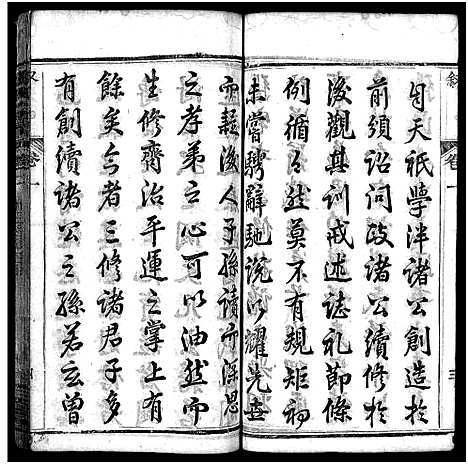 自天祇學泮諸公創造於
前須詔問政諸公續修於
後觀其訓戒述誌礼節條
例循〻然莫不有規矩初
未嘗騁辭馳說以耀先世
而疑後人子孫讀而深思
之孝弟之心可以油然而
生修齊治平運之掌上有
餘矣今者三修諸君子多
有創續諸公之孫若玄曾
敘
卷一
三